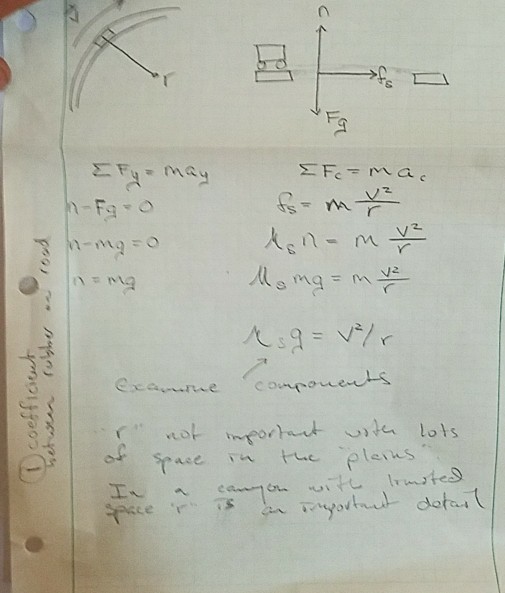 r
n
fs
Fg
ΣFy = may
ΣFc = mac
n-Fg = 0
fs = m v²/r
n-mg = 0
μs n = m v²/r
n = mg
μs mg = m v²/r
μs g = v²/r
Examine components
"r" not important with lots
of space in the "plains"
In a canyon with limited
space "r" is an important detail
① coefficient
between rubber on road